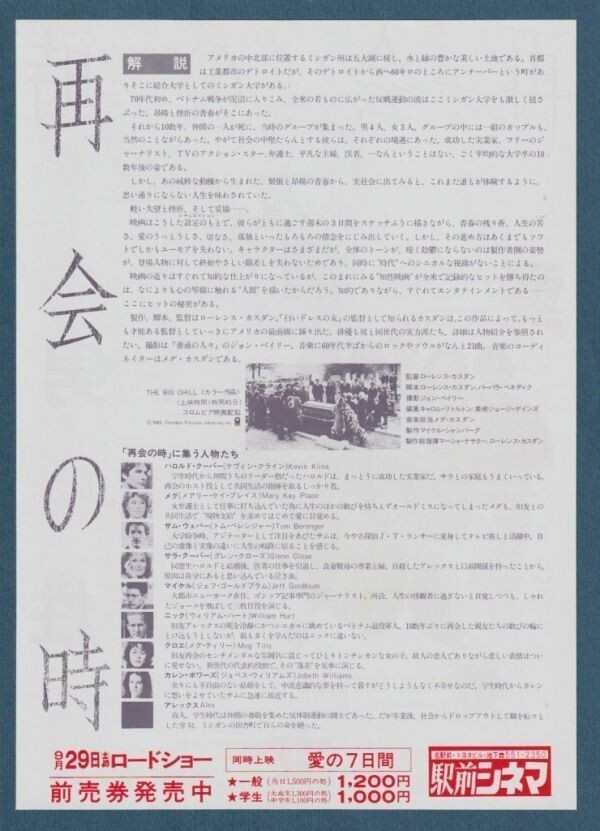 再会の時
解説
アメリカの中北部に位置するミシガン州は五大湖に接し、水と緑の豊かな美しい土地である。首都
は工業都市のデトロイトだが、そのデトロイトから西へ60キロのところにアンナーバーという町があ
りそこに総合大学としてのミシガン大学がある。
70年代初め、ベトナム戦争が泥沼に入りこみ、全米の若ものに広がった反戦運動の波はここミシガン大学をも激しく揺さ
ぶった。昂揚と挫折の青春がそこにあった。
それから10数年、仲間の一人が死に、当時のグループが集まった。男4人、女3人。グループの中には一組のカップルも、
当然のことながらあった。やがて社会の中堅たらんとする彼らは、それぞれの境遇にあった。成功した実業家、フリーのジ
ャーナリスト、TVのアクション・スター、弁護士、平凡な主婦、医者、…なんということはない、ごく平均的な大学卒の10
数年後の姿である。
しかし、あの純粋な動機から生まれた、緊張と昂揚の青春から、実社会に出てみると、これまた誰もが体験するように、
思い通りにならない人生を味わわされていた。
軽い失望と挫折、そして妥協……。
映画はこうした設定のもとで、彼らがともに過ごす週末の3日間をスケッチふうに描きながら、青春の残り香、人生の苦
さ、愛のうっとうしさ、切なさ、孤独といったもろもろの情念をにじみ出していく。しかし、その進め方はあくまでもソフ
トでしかもユーモアを失わない。キャラクターはさまざまだが、全体のトーンが、暗く陰鬱にならないのは製作者側の姿勢
が、登場人物に対して終始やさしい眼差しを失わないためであり、同時に"時代"へのシニカルな視線がないことによる。
映画の造りはすぐれて知的な仕上がりになっているが、このまれにみる"知性映画"が全米で記録的なヒットを勝ち得たの
は、なによりも心の琴線に触れる"人間"を描いたからだろう。知的でありながら、すぐれてエンタテインメントである――
ここにヒットの秘密がある。
製作、脚本、監督はローレンス・カスダン。「白いドレスの女」の監督として知られるカスダンは、この作品によって、もっと
も才能ある監督としていっきにアメリカの最前線に踊り出た。俳優も彼と同世代の実力派たち。詳細は人物紹介を参照され
たい。撮影は「普通の人々」のジョン・ベイリー。音楽に60年代半ばからのロックやソウルがなんと21曲。音楽のコーディ
ネイターはメグ・カスダンである。
THE BIG CHILL〈カラー作品〉
(上映時間1時間45分)
コロムビア映画配給
©1983 Columbia Pictures Industries Inc.
監督ローレンス・カスダン
脚本ローレンス・カスダン、バーバラ・ベネディク
撮影ジョン・ベイリー
編集キャロル・リトルトン 美術ジョージ・ゲインズ
音楽担当メグ・カスダン
製作マイケル・シャンバーグ
製作総指揮マーシャ・ナサター、ローレンス・カスダン
「再会の時」に集う人物たち
ハロルド・クーパー(ケヴィン・クライン)Kevin Kline
学生時代から仲間うちのリーダー格だったハロルドは、まっとうに成功した実業家だ。サラとの家庭もうまくいっている。
再会のホスト役として共同生活の指揮を取るしっかり者。
メグ(メアリー・ケイ・プレイス)Mary Kay Place
女弁護士として仕事に打ち込んでいた為に人生のほかの歓びを持ちえずオールドミスになってしまったメグも、旧友との
共同生活で
サム・ウェバー(トム・ベレンジャー)Tom Berenger
大学紛争時、アジテーターとして注目をあびたサムは、今や名探偵J・T・ランサーに変身してテレビ狭しと活躍中。自
己の虚像と実像の違いに人生の岐路に居ることを感じる。
サラ・クーパー(グレン・クローズ)Glenn Close
同窓生ハロルドと結婚後、医者の仕事を引退し、良妻賢母の専業主婦。自殺したアレックスと以前関係を持ったことから、
原因は自分にあると思い込んでいる泣き虫。
マイケル(ジェフ・ゴールドブラム)Jeff Goldblum
大都市ニューヨーク在住、ゴシップ記事専門のジャーナリスト。所詮、人生の傍観者に過ぎないと自覚しつつも、しゃれ
たジョークを飛ばして三枚目役を演じる。
ニック(ウィリアム・ハート)William Hurt
旧友アレックスの死を冷静にかつシニカルに眺めているベトナム退役軍人。10数年ぶりに再会した親友たちの歓びの輪に
とけ込もうとしないが、最も多くを学んだのはニックに違いない。
クロエ(メグ・ティリー)Meg Tilly
旧友再会のセンチメンタルな雰囲気に混じってひとりトンチンカンな女の子。故人の恋人でありながら悲しい表情はつい
に見せない。新世代の代表的役回で、その"落差"を見事に演じる。
カレン・ボワーズ(ジョベス・ウィリアムズ)Jobeth Williams
余りにも不自由のない結婚をして、中流意識的な夢を持って暮すがどうしようもなく不幸せなのだ。学生時代からカレン
に想いをよせていたサムに急速に接近する。
アレックスAlex
故人。学生時代は仲間の尊敬を集めた反体制運動の闘士であった。だが卒業後、社会からドロップアウトして職を転々と
した挙句、ミシガンの田舎町で自らの命を絶った。
9月29日(土)よりロードショー
前売券発売中
同時上映 愛の7日間
★一般(当日1,500円の処)1,200円
★学生(大高生1,300円の処 中学生1,100円の処)1,000円
名駅前・トヨタビル・地下☎551-2350
駅前シネマ